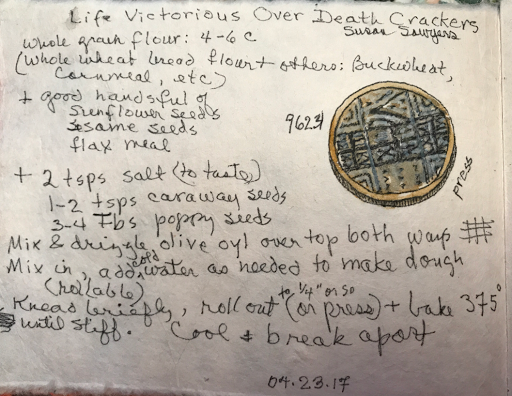 Life Victorious Over Death Crackers
Susan Sawyers
Whole grain flour: 4-6 c
(Whole wheat bread flour + others: Buckwheat,
Cornmeal, etc)
+ good handsful of
Sunflower seeds
sesame seeds
flax meal
+ 2 tsps salt (to taste)
1-2 tsps caraway seeds
3-4 Tbs poppy seeds
press
Mix & drizzle olive oyl over top both warp
Mix in, add cold water as needed to make dough
(rollable)
Knead briefly, roll out to 1/4" or so (or press) + bake 375°
until stiff. Cool & break apart
04.23.17